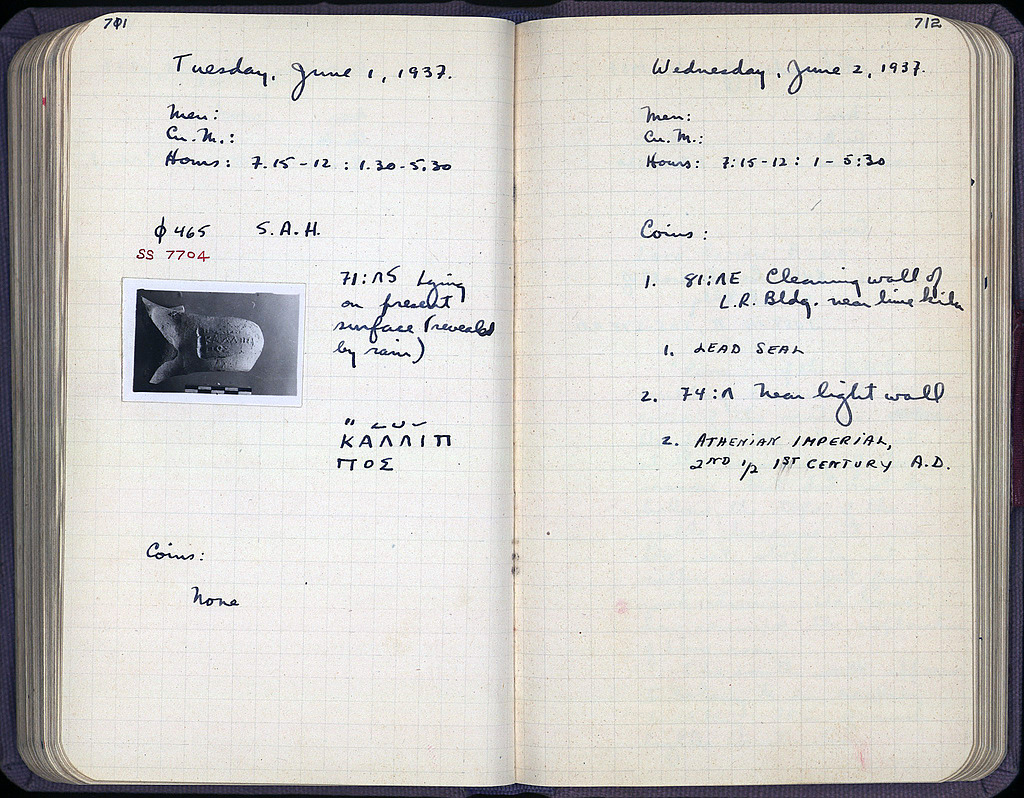 701
Tuesday, June 1, 1937.
Men:
Cu. M.:
Hours: 7.15-12 : 1.30-5.30
ϕ 465 S.A.H.
SS 7704
71:ΛS Lying
on present
surface (revealed
by rain)
ΚΑΛΛΙΠ
ΠΟΣ
Coins:
None
712
Wednesday, June 2, 1937.
Men:
Cu. M.:
Hours: 7:15-12: 1-5:30
Coins:
1. 81:ΛE Cleaning wall of
L.R. Bldg. near lime kiln
1. LEAD SEAL
2. 74:Λ Near light wall
2. ATHENIAN IMPERIAL,
2ND 1/2 1ST CENTURY A.D.